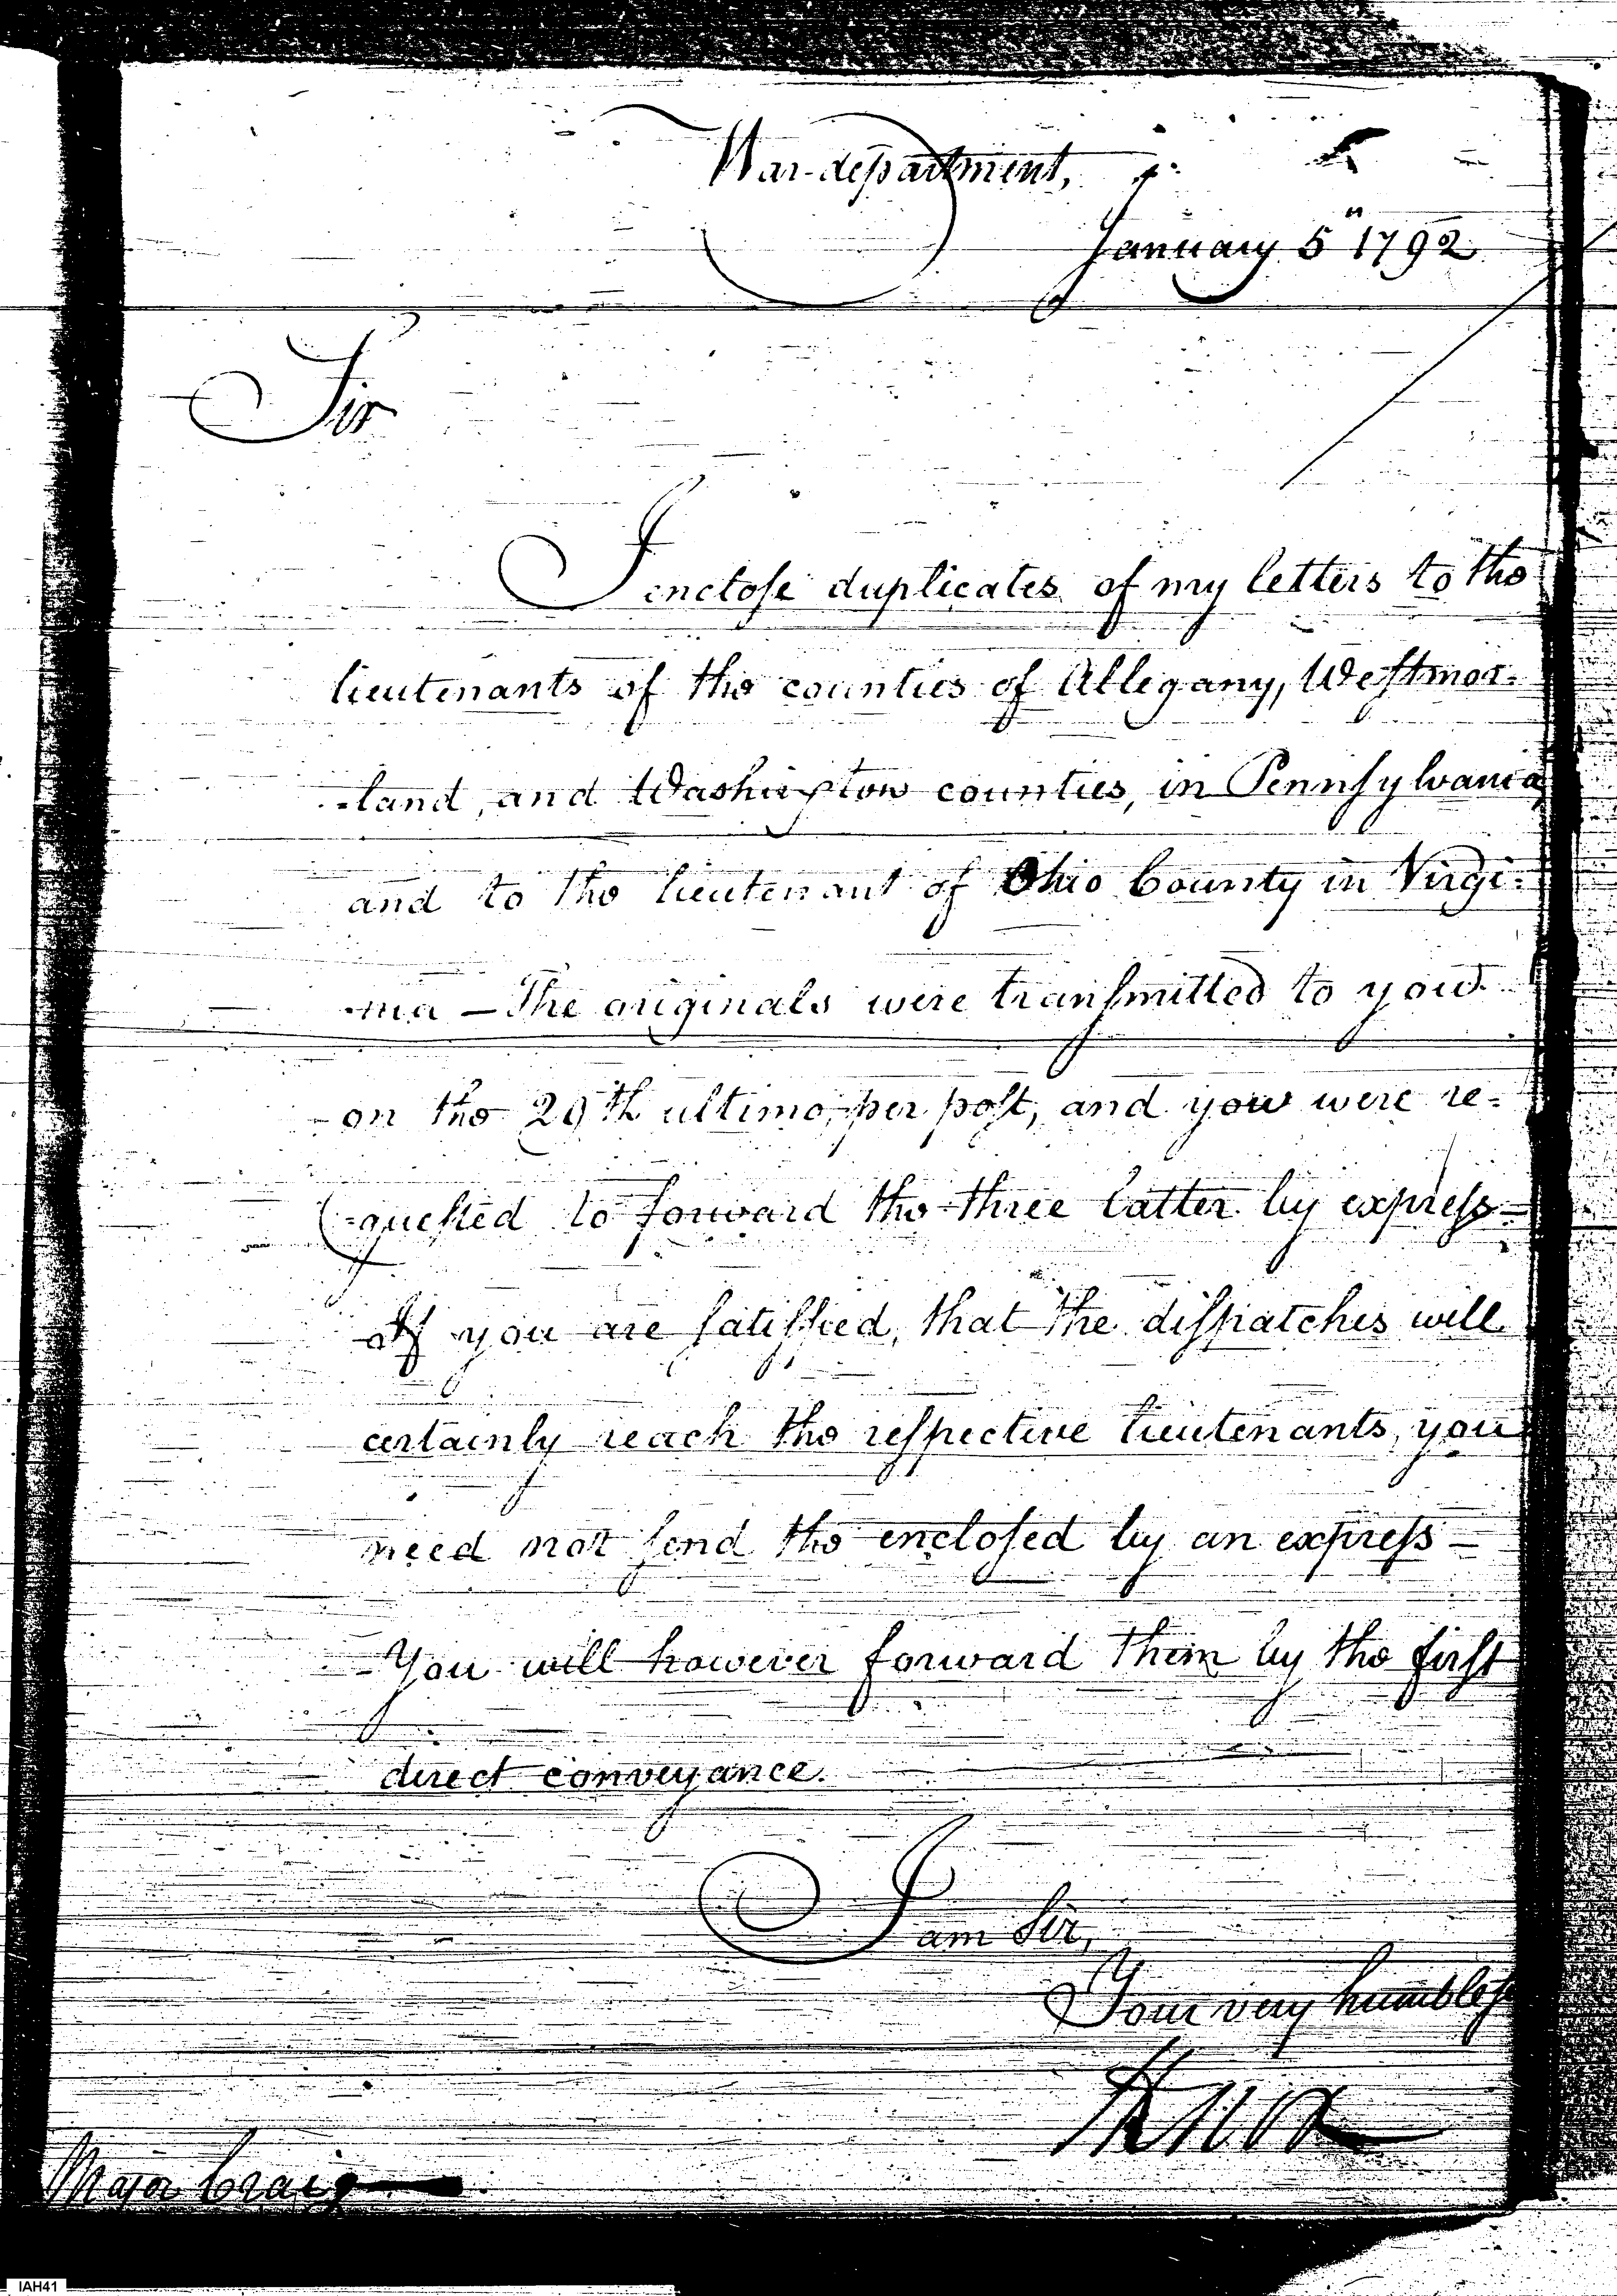 War-department,
January 5" 1792
Sir
I enclose duplicates of my letters to the
lieutenants of the counties of Allegany, Westmor-
-land, and Washington counties, in Pennsylvania,
and to the lieutenant of Ohio County in Virgi-
-nia — The originals were transmitted to you
on the 29th ultimo, per post, and you were re-
-quested to forward the three latter by express —
If you are satisfied, that the dispatches will
certainly reach the respective lieutenants, you
need not send the enclosed by an express —
You will however forward them by the first
direct conveyance.
I am Sir,
Your very humble
HKnox
Major Craig
IAH41